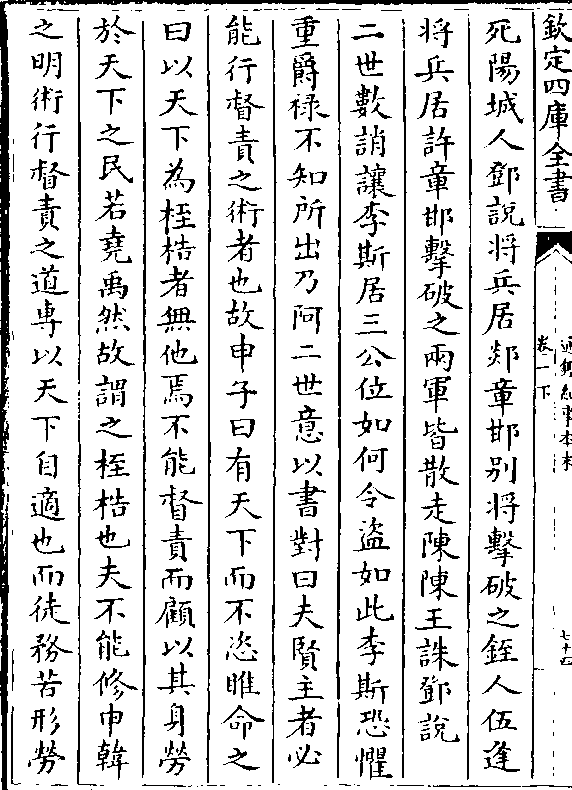 欽定四庫全書
通鑑紀事本末
卷一下
七十四
死陽城人鄧說将兵居郯章邯别将擊破之銍人伍逢
将兵居許章邯擊破之兩軍皆散走陳陳王誅鄧說
二世數誚讓李斯居三公位如何令盜如此李斯恐懼
重爵禄不知所出乃阿二世意以書對曰夫賢主者必
能行督責之術者也故申子曰有天下而不恣睢命之
曰以天下為桎梏者無他焉不能督責而顧以其身勞
於天下之民若堯禹然故謂之桎梏也夫不能修申韓
之明術行督責之道專以天下自適也而徒務苦形勞